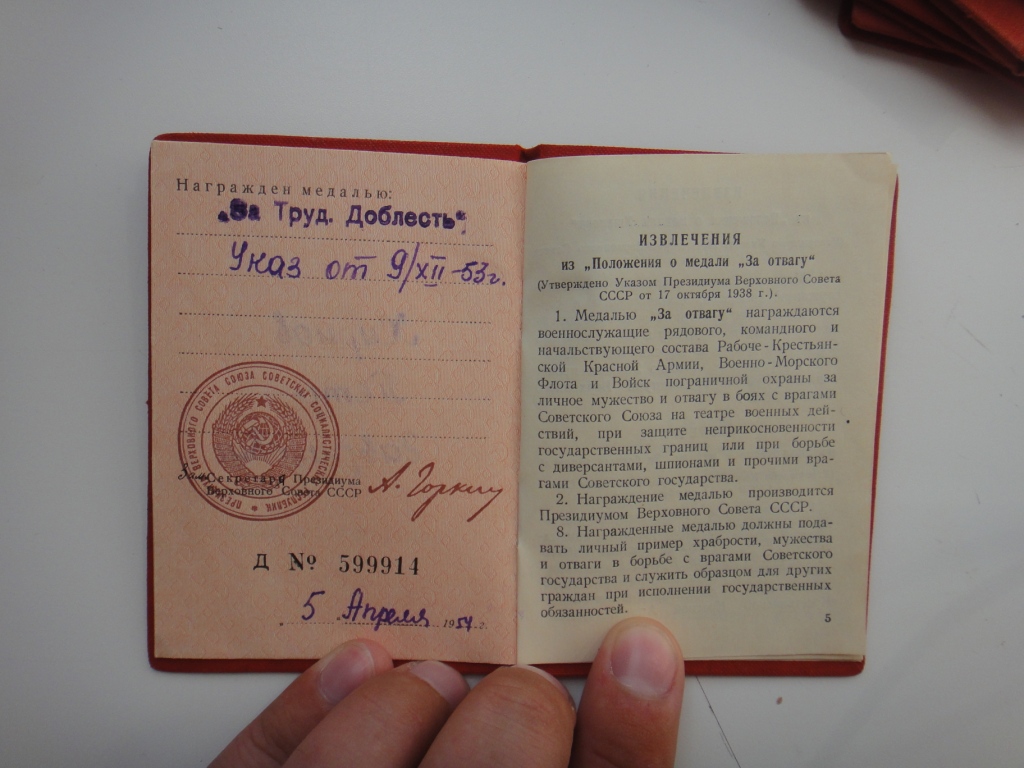 Награжден медалью:
„За Труд. Доблесть“
Указ от 9/XII-53г.
ПРЕЗИДИУМ ВЕРХОВНОГО СОВЕТА СОЮЗА СОВЕТСКИХ СОЦИАЛИСТИЧЕСКИХ РЕСПУБЛИК
Секретарь Президиума
Верховного Совета СССР
А. Горкин
Д № 599914
5 Апреля 1954 г.
ИЗВЛЕЧЕНИЯ
из „Положения о медали „За отвагу“
(Утверждено Указом Президиума Верховного Совета
СССР от 17 октября 1938 г.).
1. Медалью „За отвагу“ награждаются
военнослужащие рядового, командного и
начальствующего состава Рабоче-Крестьян-
ской Красной Армии, Военно-Морского
Флота и Войск пограничной охраны за
личное мужество и отвагу в боях с врагами
Советского Союза на театре военных дей-
ствий, при защите неприкосновенности
государственных границ или при борьбе
с диверсантами, шпионами и прочими вра-
гами Советского государства.
2. Награждение медалью производится
Президиумом Верховного Совета СССР.
8. Награжденные медалью должны пода-
вать личный пример храбрости, мужества
и отваги в борьбе с врагами Советского
государства и служить образцом для других
граждан при исполнении государственных
обязанностей.
5